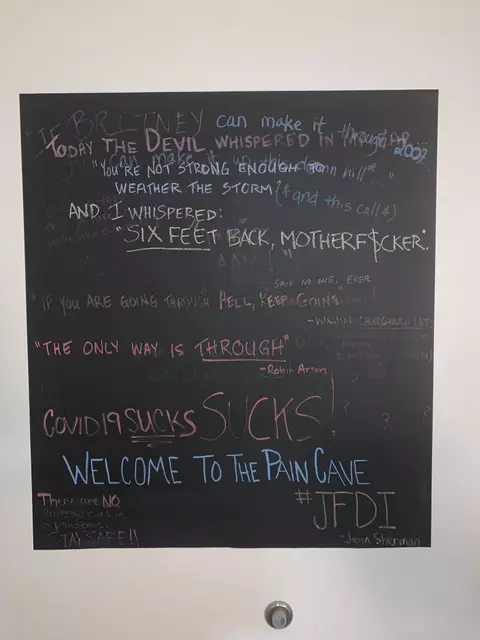 "IF BRITNEY can make it through 2007
TODAY THE DEVIL WHISPERED IN
can make it up this damn hill"...
"YOU'RE NOT STRONG ENOUGH TO
WEATHER THE STORM"
(* and this call *)
AND I WHISPERED:
"SIX FEET BACK, MOTHERF$CKER."
SAID NO ONE, EVER
"IF YOU ARE GOING THROUGH HELL, KEEP GOING"
"THE ONLY WAY IS THROUGH"
-Robin Arzon
COVID19 SUCKS SUCKS!
? ? ? ?
WELCOME TO THE PAIN CAVE
#JFDI
-Jenn Sherman
There are NO
emergencies in
a pandemic.
STAY SAFE!!